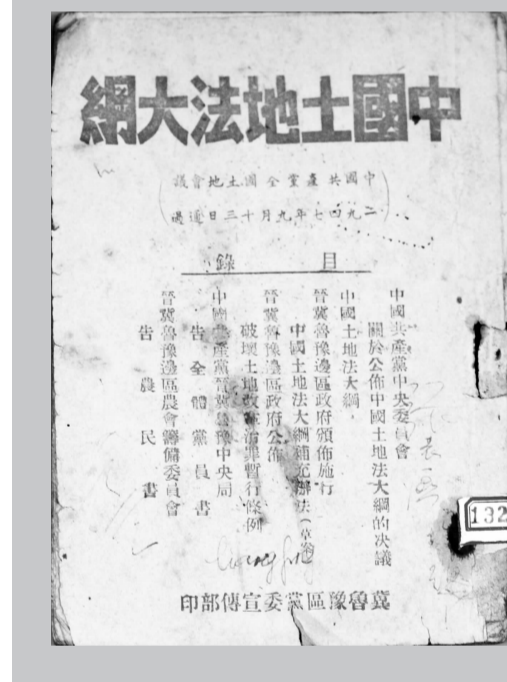 中國土地法大綱
中國共產黨全國土地會議
一九四七年九月十三日通過
目錄
中國共產黨中央委員會
關於公佈中國土地法大綱的決議
中國土地法大綱
晉冀魯豫邊區政府頒佈施行
中國土地法大綱補充辦法（草案）
晉冀魯豫邊區政府公佈
破壞土地改革治罪暫行條例
中國共產黨晉冀魯豫中央局
告全體黨員書
晉冀魯豫邊區農會籌備委員會
告農民書
冀魯豫區黨委宣傳部印
132